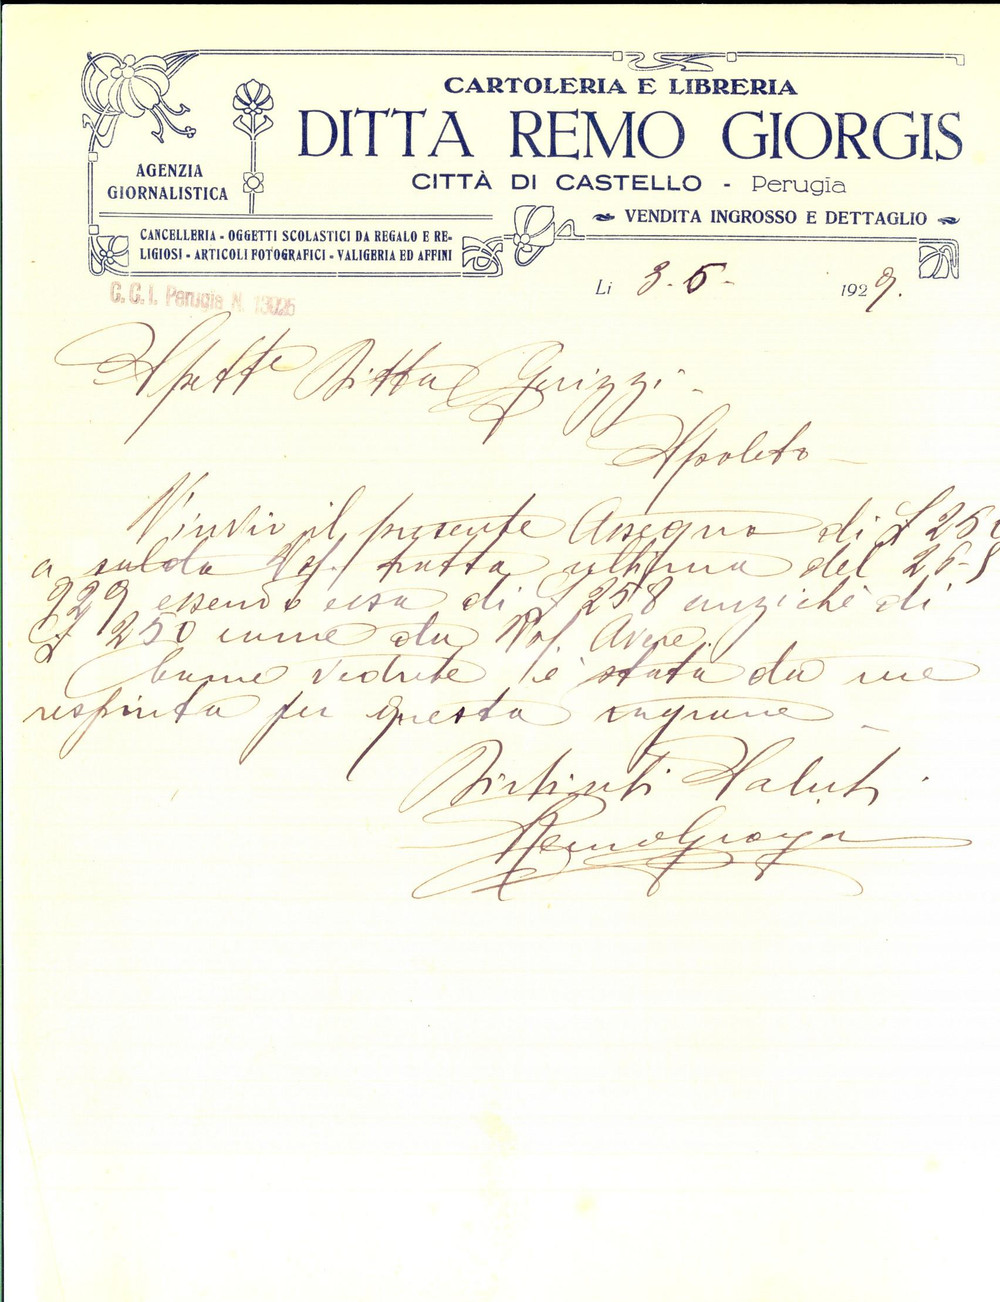 CARTOLERIA E LIBRERIA
DITTA REMO GIORGIS
CITTÀ DI CASTELLO - Perugia
AGENZIA
GIORNALISTICA
VENDITA INGROSSO E DETTAGLIO
CANCELLERIA - OGGETTI SCOLASTICI DA REGALO E RE-
LIGIOSI - ARTICOLI FOTOGRAFICI - VALIGERIA ED AFFINI
Li 3-5- 1929.
C.C.I. Perugia N. 13025
Spett. Ditta
Spoleto
V'invio il presente Assegno di £ 250
a saldo Vs/. tratta ultima del
929 essendo essa di £ 258 anziché di
£ 250 come da Avere.
Come vedrete è stata da me
respinta per questa ragione
Distinti Saluti.
Remo Giorgis